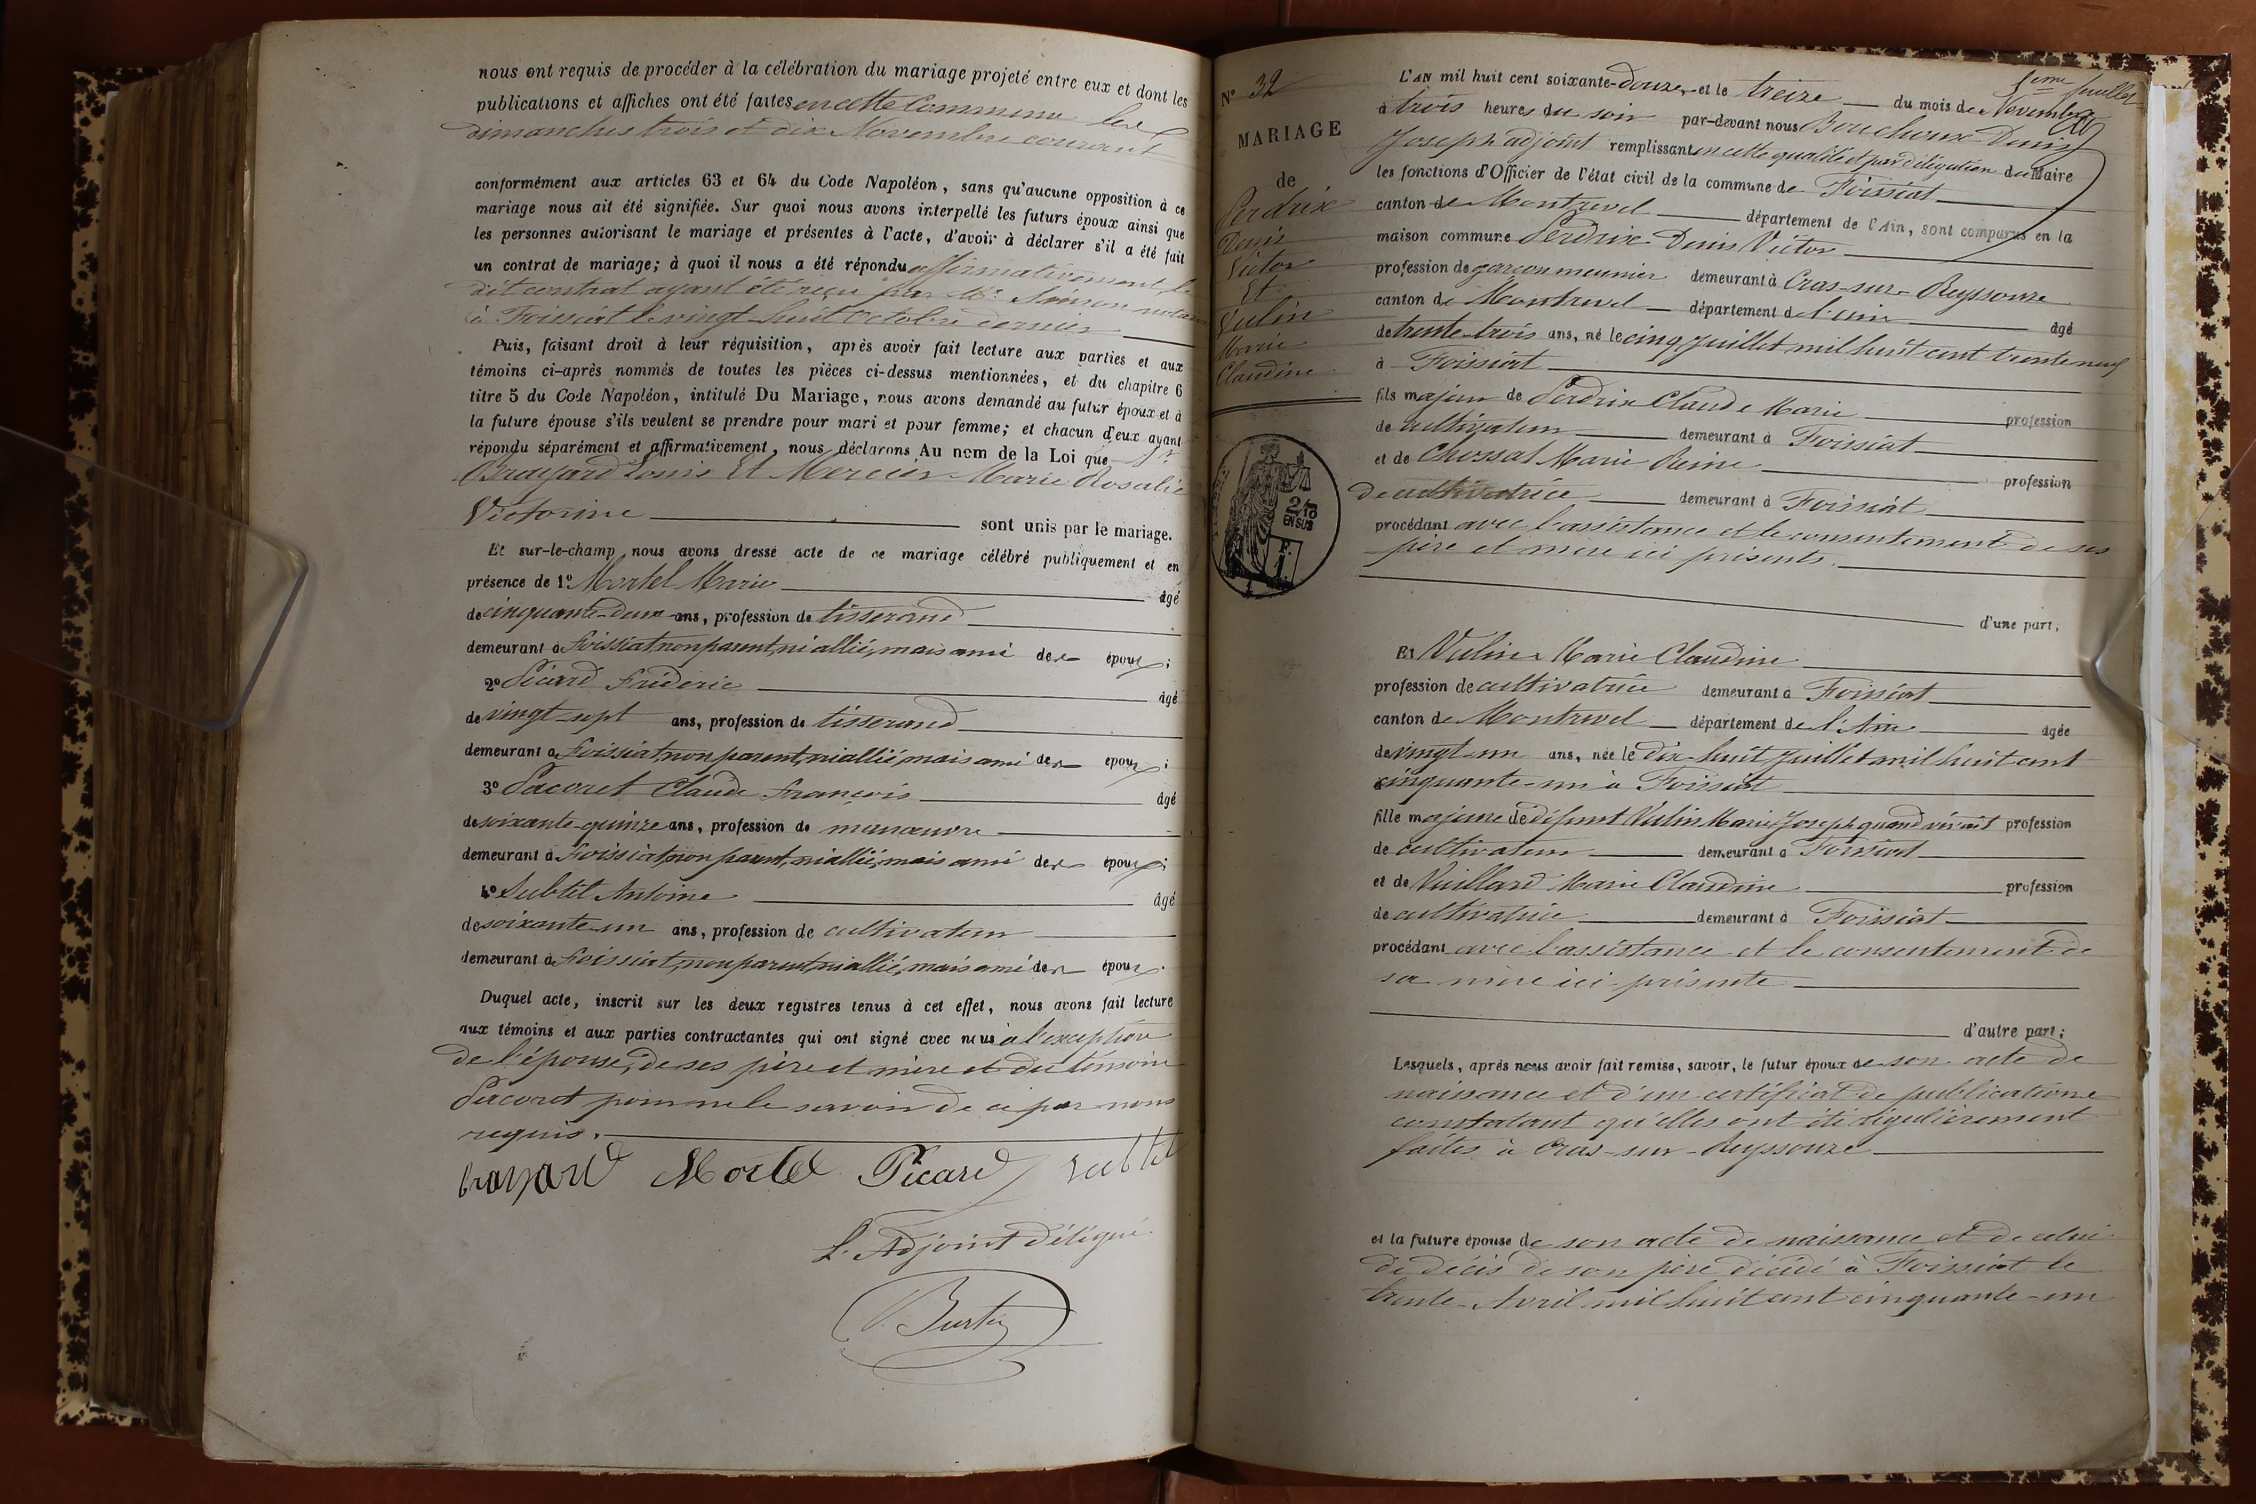 nous ont requis de procéder à la célébration du mariage projeté entre eux et dont les
publications et affiches ont été faites en cette Commune les
dimanches trois et dix Novembre courant
conformément aux articles 63 et 64 du Code Napoléon, sans qu'aucune opposition à ce
mariage nous ait été signifiée. Sur quoi nous avons interpellé les futurs époux ainsi que
les personnes autorisant le mariage et présentes à l'acte, d'avoir à déclarer s'il a été fait
un contrat de mariage; à quoi il nous a été répondu affirmativement, le
dit contrat ayant été reçu par Me notaire
à Foissiat le vingt-huit octobre dernier
Puis, faisant droit à leur réquisition, après avoir fait lecture aux parties et aux
témoins ci-après nommés de toutes les pièces ci-dessus mentionnées, et du chapitre 6
titre 5 du Code Napoléon, intitulé Du Mariage, nous avons demandé au futur époux et à
la future épouse s'ils veulent se prendre pour mari et pour femme; et chacun d'eux ayant
répondu séparément et affirmativement, nous déclarons Au nom de la Loi que
Brayard Louis Et Mercier Marie Rosalie
Victorine sont unis par le mariage.
Et sur-le-champ nous avons dressé acte de ce mariage célébré publiquement et en
présence de 1° Mortel Marie âgé
de cinquante-deux ans, profession de tisserand
demeurant à Foissiat, non parent, ni allié, mais ami des époux;
2° Picard Fréderic âgé
de vingt-sept ans, profession de tisserand
demeurant à Foissiat, non parent, ni allié, mais ami des époux;
3° Pacoret Claude François âgé
de soixante-quinze ans, profession de manœuvre
demeurant à Foissiat, non parent, ni allié, mais ami des époux;
4° Subtil Antoine âgé
de soixante-un ans, profession de cultivateur
demeurant à Foissiat, non parent, ni allié, mais ami des époux.
Duquel acte, inscrit sur les deux registres tenus à cet effet, nous avons fait lecture
aux témoins et aux parties contractantes qui ont signé avec nous à l'exception
de l'épouse, de ses père et mère et du témoin
Pacoret pour ne le savoir de ce par nous
requis.
brayard Mortel Picard Subtil
L'Adjoint délégué
N° 32
MARIAGE
de
Perdrix
Denis
Victor
Et
Vulin
Marie
Claudine
2/10
EN SUS
F.
1.
feuillet
L'AN mil huit cent soixante-douze, et le treize du mois de Novembre
à trois heures du soir par-devant nous Bouchoux Denis
Joseph adjoint remplissant en cette qualité et par délégation du Maire
les fonctions d'Officier de l'état civil de la commune de Foissiat
canton de Montrevel département de l'Ain, sont comparus en la
maison commune Perdrix Denis Victor
profession de garçon meunier demeurant à Cras-sur-Reyssouze
canton de Montrevel département de l'ain âgé
de trente-trois ans, né le cinq Juillet mil huit cent trente neuf
à Foissiat
fils majeur de Perdrix Claude Marie profession
de cultivateur demeurant à Foissiat
et de Chossat Marie Reine profession
de cultivatrice demeurant à Foissiat
procédant avec l'assistance et le consentement de ses
père et mère ici présents.
d'une part;
Et Vulin Marie Claudine
profession de cultivatrice demeurant à Foissiat
canton de Montrevel département de l'Ain âgée
de vingt-un ans, née le dix-huit Juillet mil huit cent
cinquante-un à Foissiat
fille majeure de défunt Vulin Marie Joseph quand vivait profession
de cultivateur demeurant à Foissiat
et de Vuillard Marie Claudine profession
de cultivatrice demeurant à Foissiat
procédant avec l'assistance et le consentement de
sa mère ici présente
d'autre part;
Lesquels, après nous avoir fait remise, savoir, le futur époux de son acte de
naissance et d'un certificat de publications
constatant qu'elles ont été régulièrement
faites à Cras-sur-Reyssouze
et la future épouse de son acte de naissance et de celui
de décès de son père décédé à Foissiat le
trente Avril mil huit cent cinquante-un